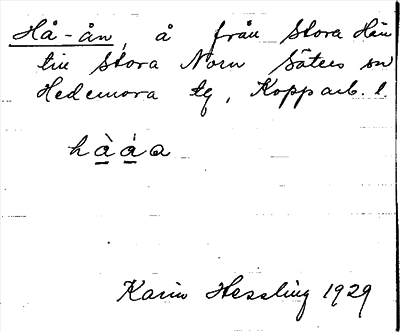 Hå-ån, å från Stora Hån
till Stora Norn Säters sn
Hedemora tg, Kopparb. l.
hå̱å̱a
Karin Hessling 1929